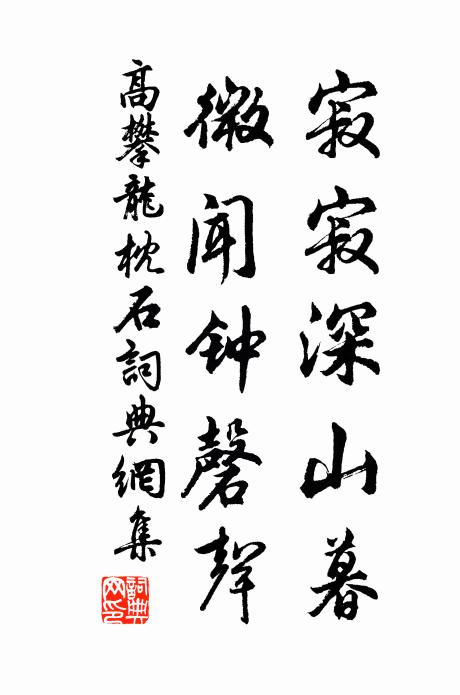 寂寂深山暮
微闻钟磬聲
高攀龍枕石詞典網集
詞典網印